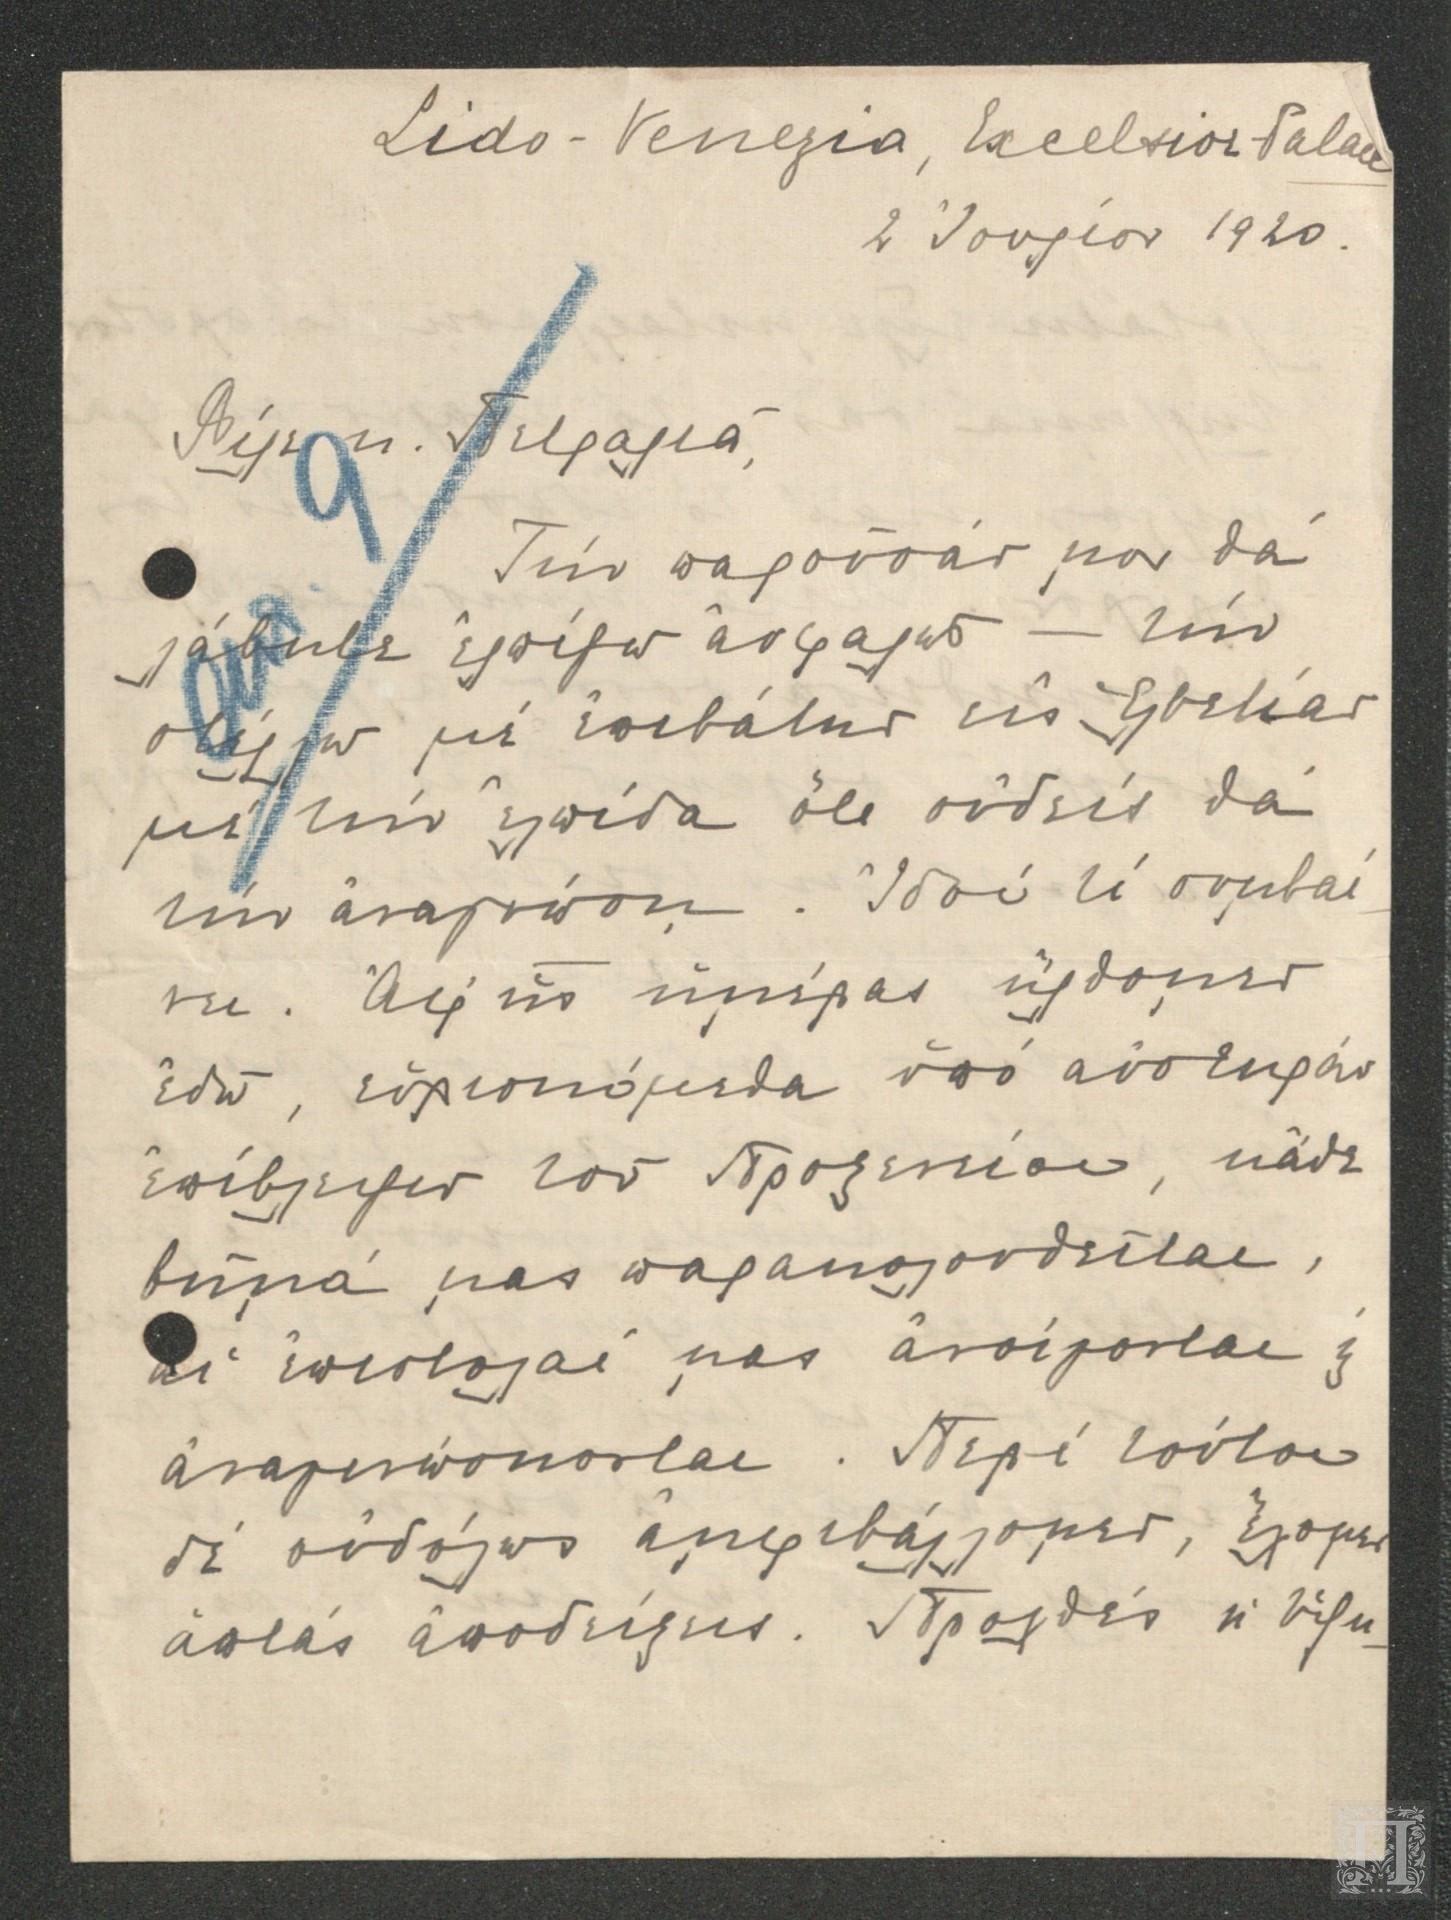 Lido - Venezia, Excelsior-Palace
2 Ἰουλίου 1920.
Φίλε κ. Πετραλιᾶ,
9
Τὴν παροῦσάν μου θὰ
λάβητε ἐλπίζω ἀσφαλῶς — τὴν
στέλλω μὲ ἐπιβάτην εἰς Ἐλβετίαν
μὲ τὴν ἐλπίδα ὅτι οὐδεὶς θὰ
τὴν ἀναγνώσῃ. Ἰδοὺ τί συμβαί-
νει. Ἀφ' ἧς ἡμέρας ἤλθομεν
ἐδῶ, εὑρισκόμεθα ὑπὸ αὐστηρὰν
ἐπίβλεψιν τοῦ Προξενείου, κάθε
βῆμά μας παρακολουθεῖται,
αἱ ἐπιστολαί μας ἀνοίγονται &
ἀναγινώσκονται. Περὶ τούτου
δὲ οὐδόλως ἀμφιβάλλομεν, ἔχομεν
ἁπτὰς ἀποδείξεις. Προχθὲς ἡ Ὑψη-